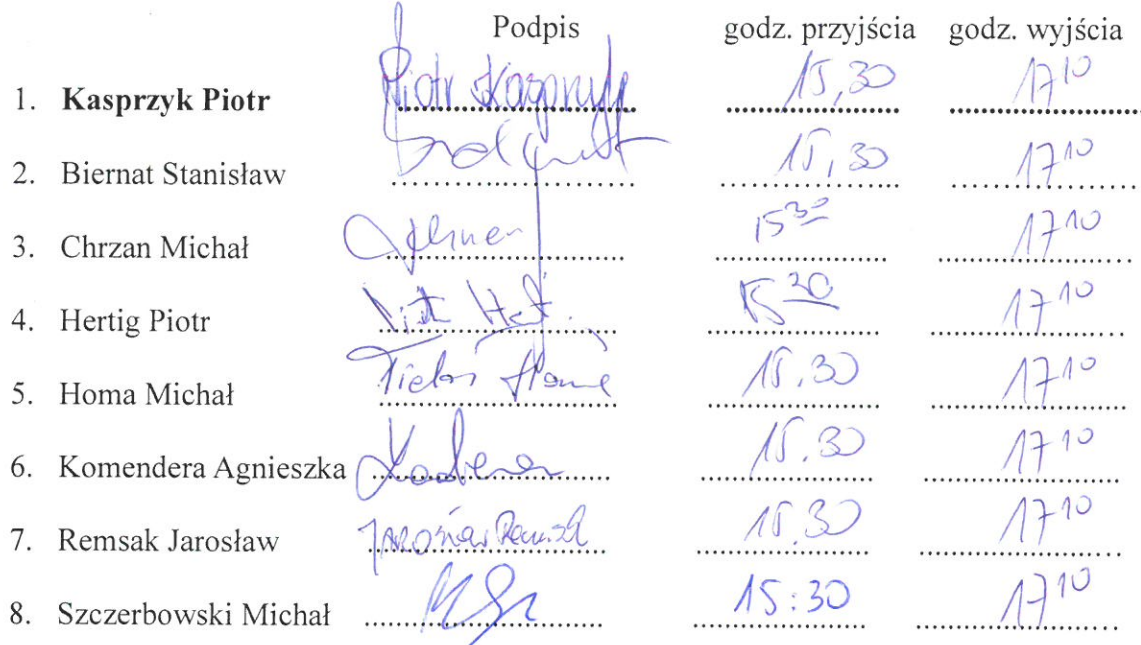 Podpis godz. przyjścia godz. wyjścia
1. Kasprzyk Piotr Piotr Kasprzyk 15,30 17¹⁰
2. Biernat Stanisław 15,30 17¹⁰
3. Chrzan Michał 15³⁰ 17¹⁰
4. Hertig Piotr 15³⁰ 17¹⁰
5. Homa Michał 15.30 17¹⁰
6. Komendera Agnieszka 15.30 17¹⁰
7. Remsak Jarosław Jarosław Remsak 15.30 17¹⁰
8. Szczerbowski Michał 15:30 17¹⁰